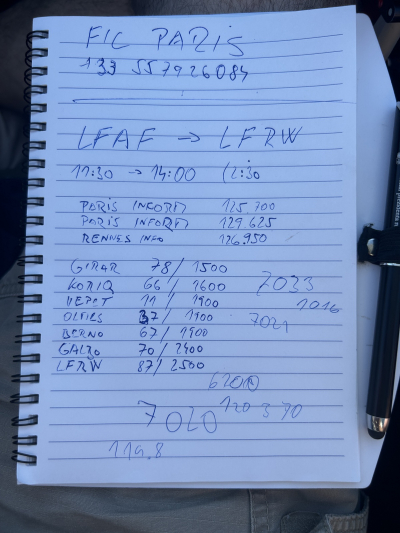 FIC PARIS
133 557926084
LFAF → LFRW
11:30 → 14:00 (2:30
PARIS INFORM 125.700
PARIS INFORM 129.625
RENNES INFO 126.950
GIRAR 78/1500
KORIQ 66/1600 7033
VEPET 11/1900 1016
OLFES 37/1900 7021
BERNO 67/1900
GALBO 70/2400
LFRW 87/2500
6200
7020 120 3 30
119.8